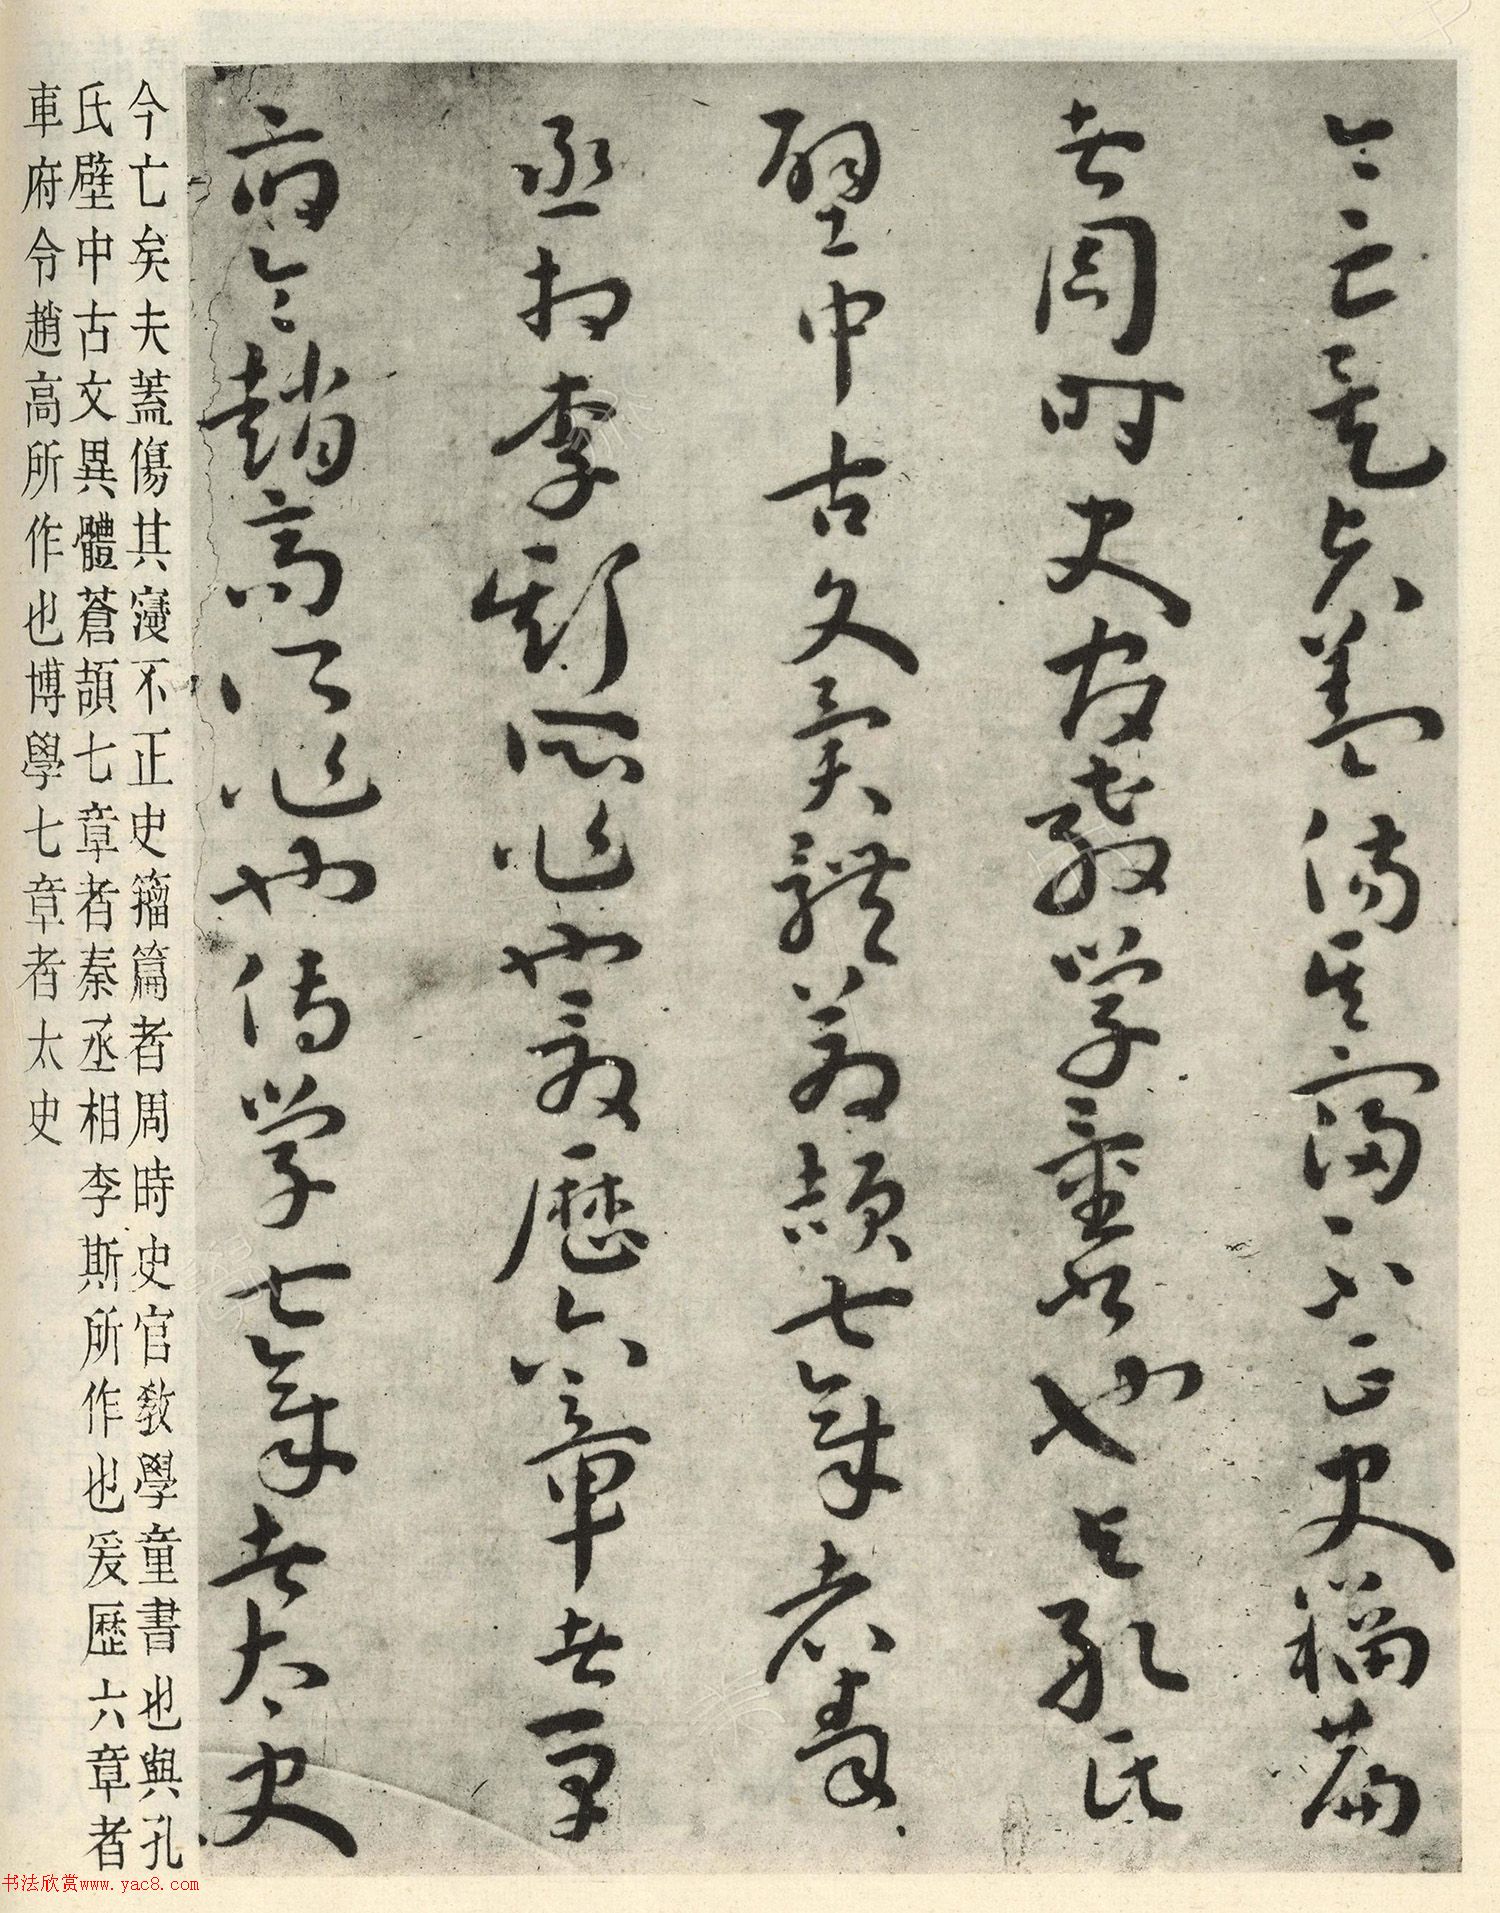 今亡矣夫蓋傷其寖不正史籀篇
者周時史官教學童書也與孔氏
壁中古文異體蒼頡七章者秦
丞相李斯所作也爰歷六章者車
府令趙高所作也博學七章者太史
今亡矣夫蓋傷其寖不正史籀篇者周時史官敎學童書也與孔
氏壁中古文異體蒼頡七章者秦丞相李斯所作也爰歷六章者
車府令趙高所作也博學七章者太史
书法欣赏www.yac8.com